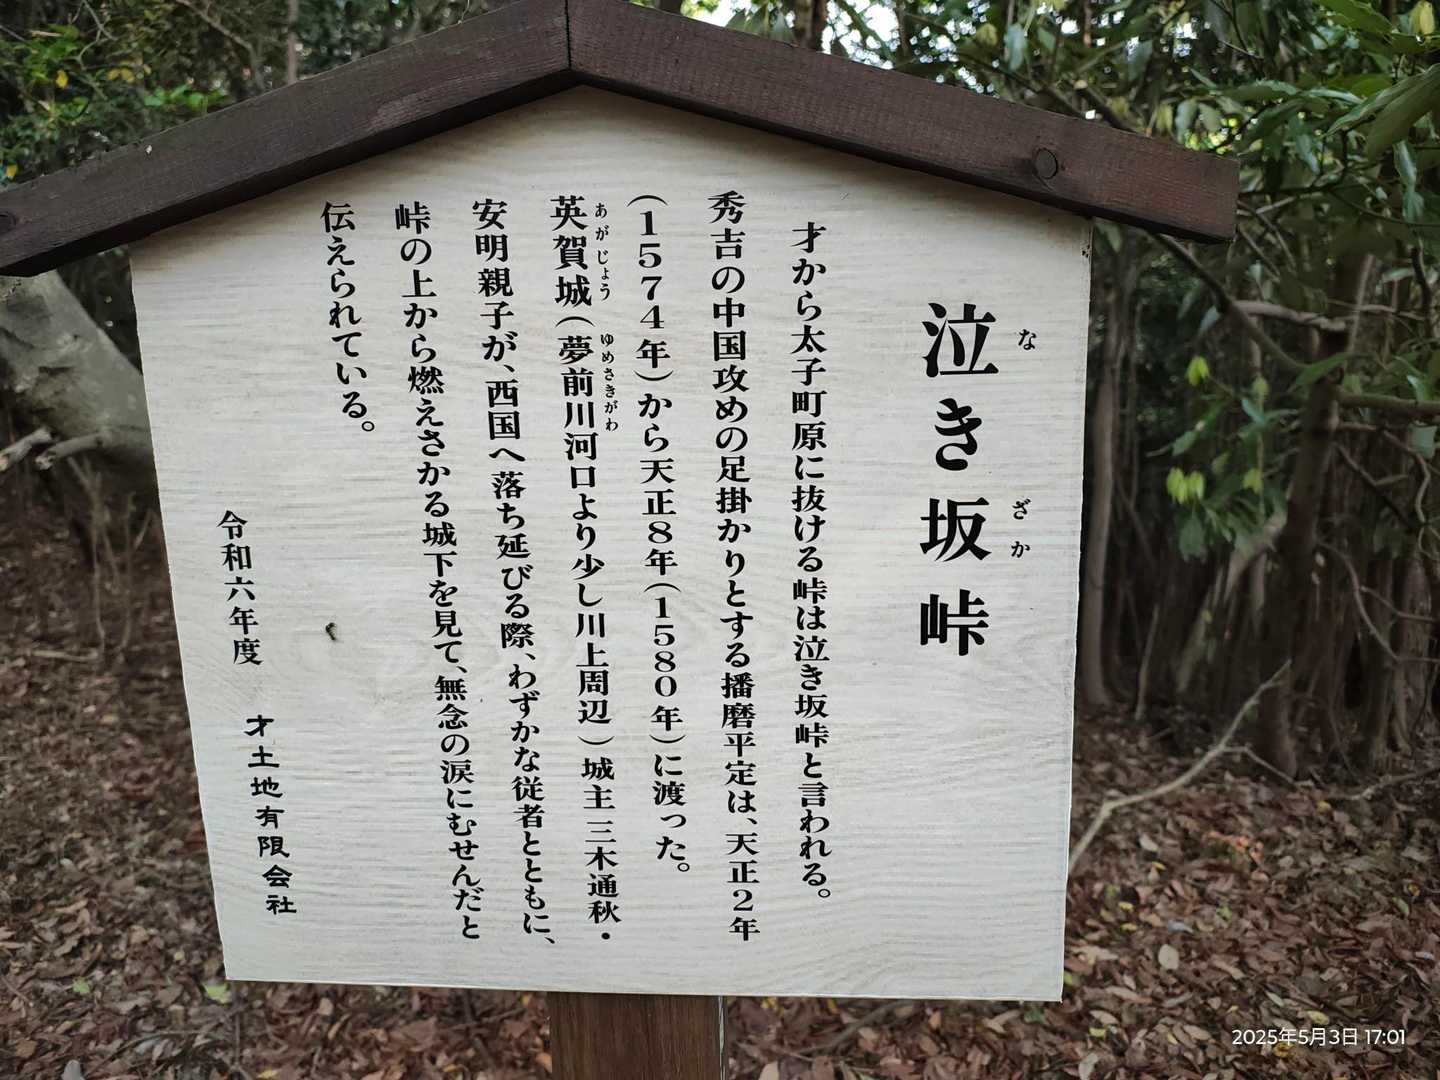 泣き坂峠
な
ざか
才から太子町原に抜ける峠は泣き坂峠と言われる。
秀吉の中国攻めの足掛かりとする播磨平定は、天正2年
(1574年)から天正8年(1580年)に渡った。
あがじょう
ゆめさきがわ
英賀城(夢前川河口より少し川上周辺)城主三木通秋・
安明親子が、西国へ落ち延びる際、わずかな従者とともに、
峠の上から燃えさかる城下を見て、無念の涙にむせんだと
伝えられている。
令和六年度 才土地有限会社
2025年5月3日 17:01